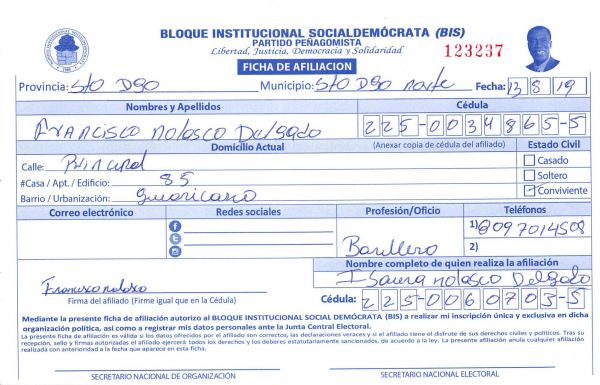 BLOQUE INSTITUCIONAL SOCIALDEMÓCRATA (BIS)
PARTIDO PEÑAGOMISTA
Libertad, Justicia, Democracia y Solidaridad
123237
FICHA DE AFILIACION
Provincia: Sto Dgo Municipio: Sto Dgo norte Fecha: 13 8 19
Nombres y Apellidos Cédula
Francisco nolasco Delgado 225-0034865-5
Domicilio Actual (Anexar copia de cédula del afiliado) Estado Civil
Calle: Principal Casado
#Casa / Apt. / Edificio: 85 Soltero
Barrio / Urbanización: guaricano Conviviente
Correo electrónico Redes sociales Profesión/Oficio Teléfonos
1) 8097014508
Banllero 2)
Nombre completo de quien realiza la afiliación
Francisco nolasco Isaura nolasco Delgado
Firma del afiliado (Firme igual que en la Cédula) Cédula: 225-0060703-5
Mediante la presente ficha de afiliación autorizo al BLOQUE INSTITUCIONAL SOCIAL DEMÓCRATA (BIS) a realizar mi inscripción única y exclusiva en dicha
organización política, así como a registrar mis datos personales ante la Junta Central Electoral.
La presente ficha de afiliación es valida si los datos ofrecidos por el afiliado son correctos, las declaraciones veraces y si el afiliado tiene el disfrute de sus derechos civiles y políticos. Tras su
recepción, sello y firmas autorizadas el afiliado ejercerá todos los derechos y los deberes estatutariamente sancionados, de acuerdo a la ley. La presente afiliación anula cualquier afiliación
realizada con anterioridad a la fecha que aparece en esta ficha.
SECRETARIO NACIONAL DE ORGANIZACIÓN SECRETARIO NACIONAL ELECTORAL